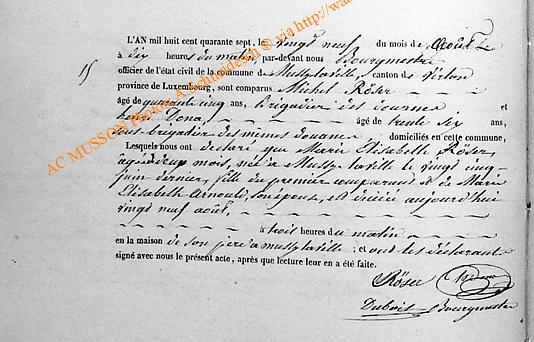 L'AN mil huit cent quarante sept, le vingt neuf du mois de Août
à dix heures du matin, par-devant nous Bourgmestre
15 officier de l'état civil de la commune de Mussy la ville, canton de Virton
province de Luxembourg, sont comparus Michel Röser
âgé de quarante cinq ans, Brigadier des douanes et
Dona, âgé de trente six ans,
sous-brigadier des mêmes douanes domiciliés en cette commune,
Lesquels nous ont déclaré que Marie Elisabeth Röser,
agée de deux mois, née à Mussy la ville le vingt cinq
juin dernier, fille du premier comparant et de Marie
Elisabeth Arnould, son épouse, est décédée aujourd'hui
vingt neuf août,
à trois heures du matin
en la maison de son père à mussy la ville ; et ont les déclarants
signé avec nous le présent acte, après que lecture leur en a été faite.
Röser
Dubois Bourgmestre
AC MUSSON Photo: A.Schneidesch ® via http://wa